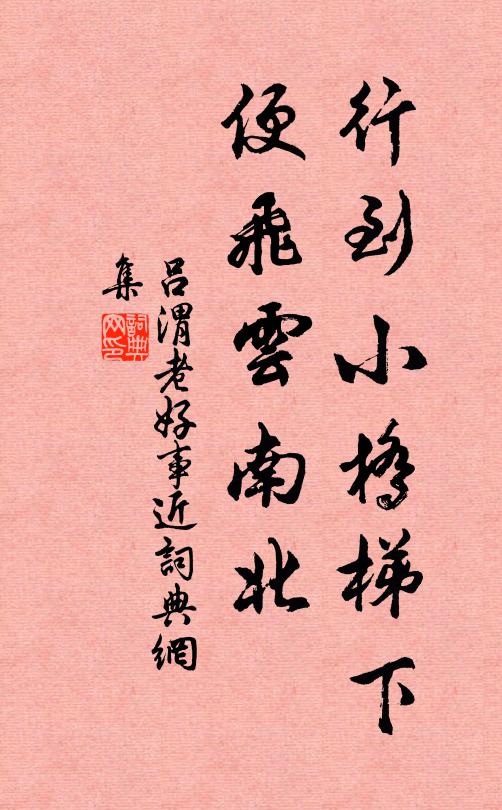 行到小橋梯下
便飛雲南北
呂渭老好事近詞典網
集
詞典
网印